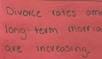 Divorce rates amo
long-term marria
are increasing.